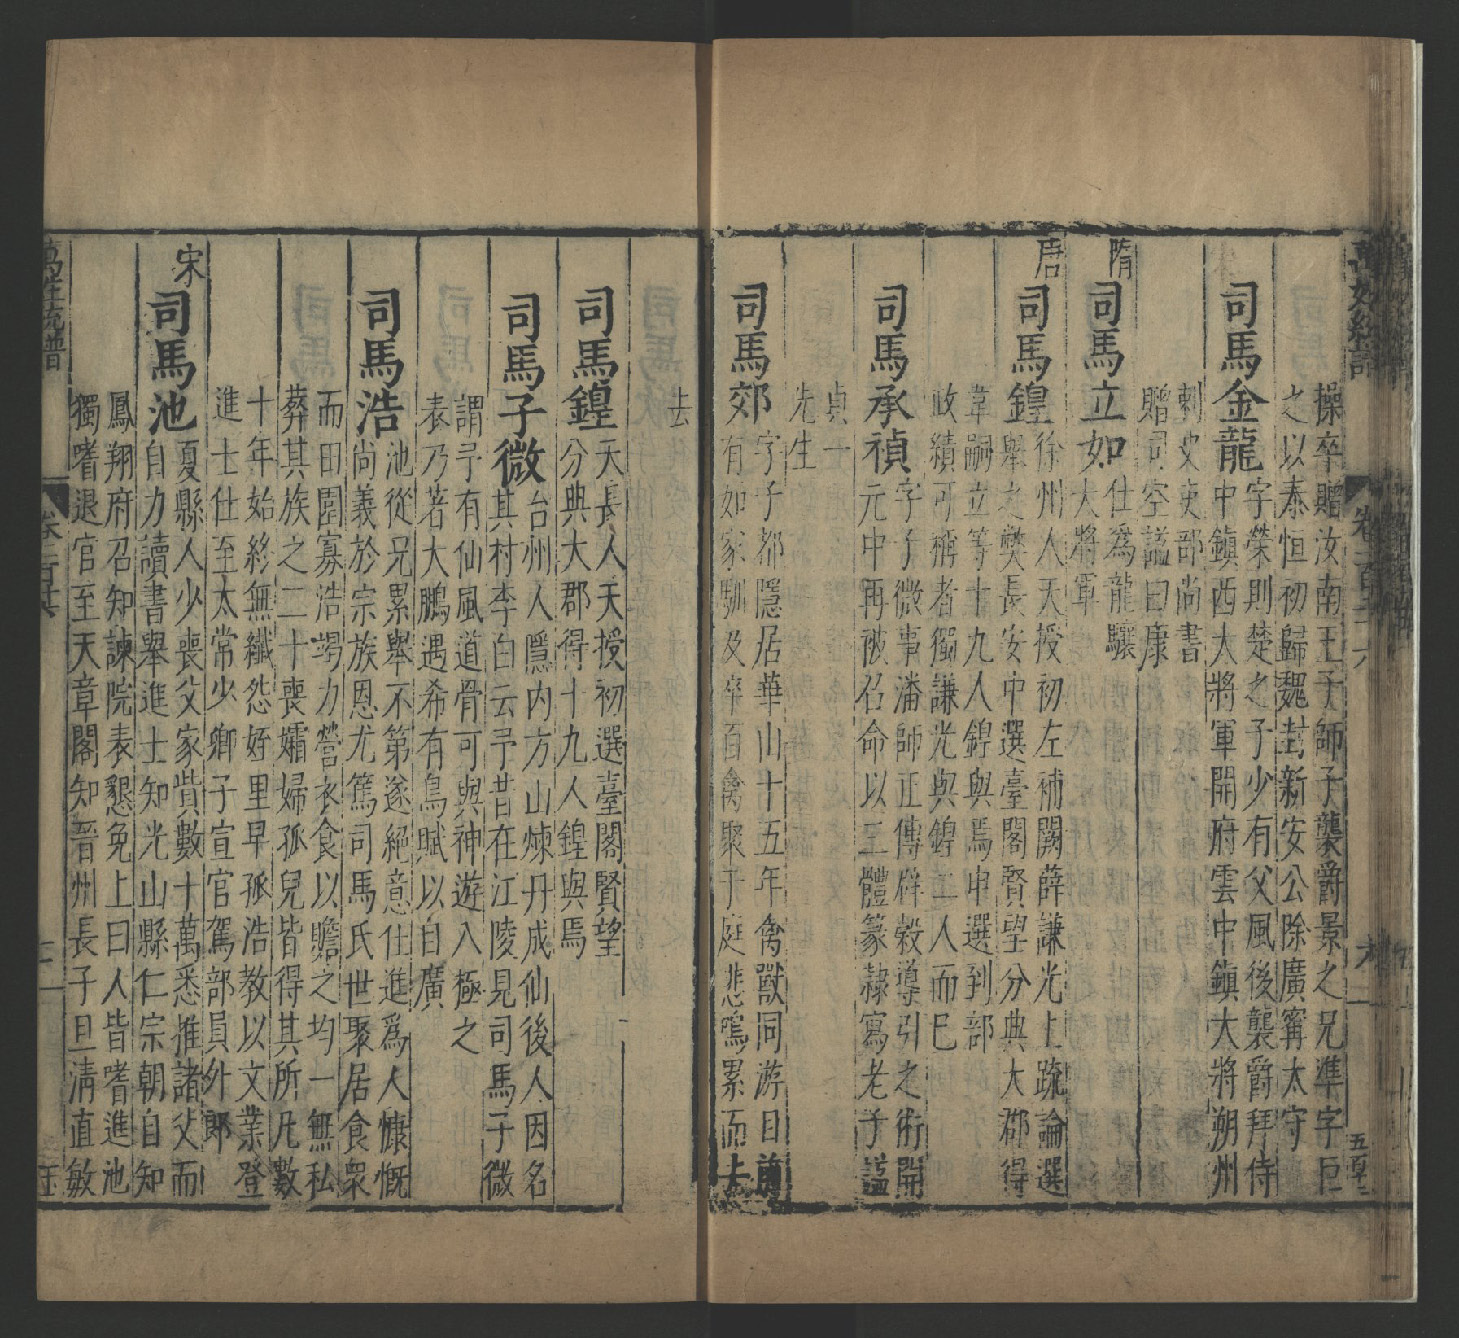 萬姓統譜
卷一百二十六
五百五十二
操卒贈汝南王子師子襲爵景之兄準字巨
之以泰恒初歸魏封新安公除廣甯太守
司馬金龍字榮則楚之子少有父風後襲爵拜侍
中鎮西大將軍開府雲中鎮大將朔州
刺史吏部尚書
贈司空謚曰康
隋
司馬立如仕為龍驤
大將軍
唐
司馬鍠徐州人天授初左補闕薛謙光上疏論選
舉之獘長安中選臺閣賢望分典大郡得
韋嗣立等十九人鍠與焉中選到部
政績可稱者獨謙光與鍠二人而已
司馬承禎字子微事潘師正傳辟穀導引之術開
元中再被召命以三體篆隸寫老子謚
貞一
先生
司馬郊字子都隱居華山十五年禽獸同游日前
有如家馴及卒百禽聚于庭悲鳴累而上
去
司馬鍠天長人天授初選臺閣賢望
分典大郡得十九人鍠與焉
司馬子微台州人隱内方山煉丹成仙後人因名
其村李白云予昔在江陵見司馬子微
謂予有仙風道骨可與神遊八極之
表乃著大鵬遇希有鳥賦以自廣
司馬浩池從兄累舉不第遂絕意仕進爲人慷慨
尚義於宗族恩尤篤司馬氏世聚居食衆
而田園寡浩竭力營衣食以贍之均一無私
葬其族之二十喪孀婦孤兒皆得其所凡數
十年始終無纖怨姪里早孤浩教以文業登
進士仕至太常少卿子宣官駕部員外郎
宋
司馬池夏縣人少喪父家貲數十萬悉推諸父而
自力讀書舉進士知光山縣仁宗朝自知
鳳翔府召知諫院表懇免上曰人皆嗜進池
獨嗜退官至天章閣知晉州長子旦清直敏
萬姓統譜